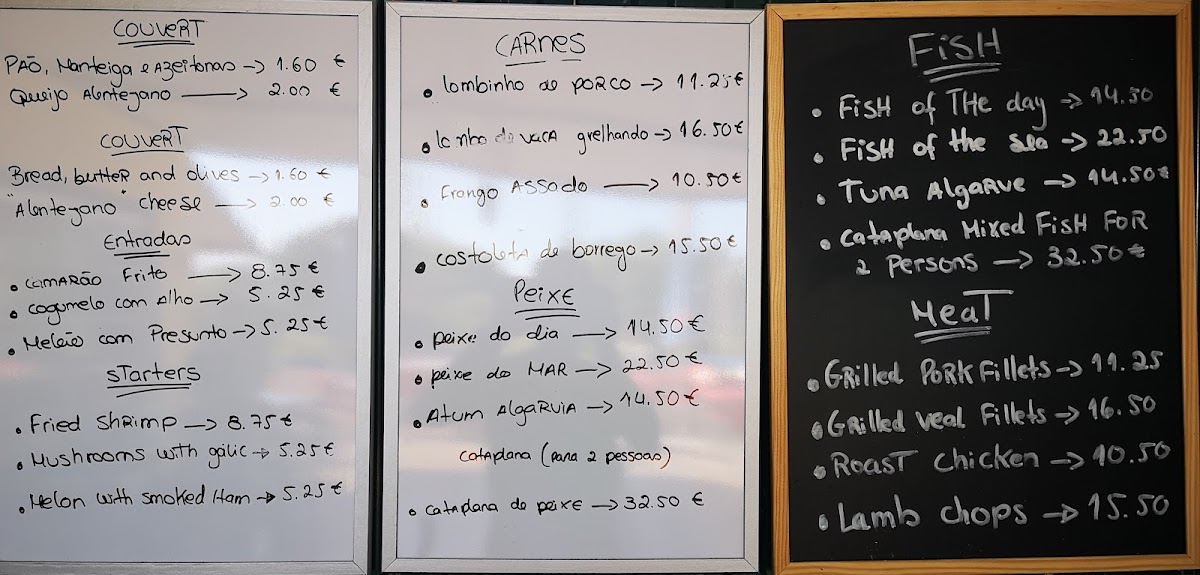 COUVERT
PÃO, Manteiga e Azeitonas → 1.60 €
Queijo Alentejano → 2.00 €
COUVERT
Bread, butter and olives → 1.60 €
"Alentejano" cheese → 2.00 €
Entradas
• CAMARÃO Frito → 8.75 €
• cogumelo com Alho → 5.25 €
• Melão com Presunto → 5.25 €
STarters
• Fried Shrimp → 8.75 €
• Mushrooms with galic → 5.25 €
• Melon with smoked Ham → 5.25 €
CARNES
• lombinho de PORCO → 11.25 €
• de VACA grelhando → 16.50 €
• Frango Assado → 10.50 €
• COSTOLETA de borrego → 15.50 €
PEIXE
• peixe do dia → 14.50 €
• peixe do MAR → 22.50 €
• Atum AlgARVIA → 14.50 €
CATAPLANA (para 2 pessoas)
• CATAPLANA de peixe → 32.50 €
FiSH
• FiSH of THe day → 14.50
• FiSH of the sea → 22.50
• Tuna Algarve → 14.50 €
• Cataplana Mixed FisH FOR
2 Persons → 32.50 €
MeaT
• GRilled PORK Fillets → 11.25
• GRilled veal Fillets → 16.50
• ROAST chicken → 10.50
• Lamb chops → 15.50